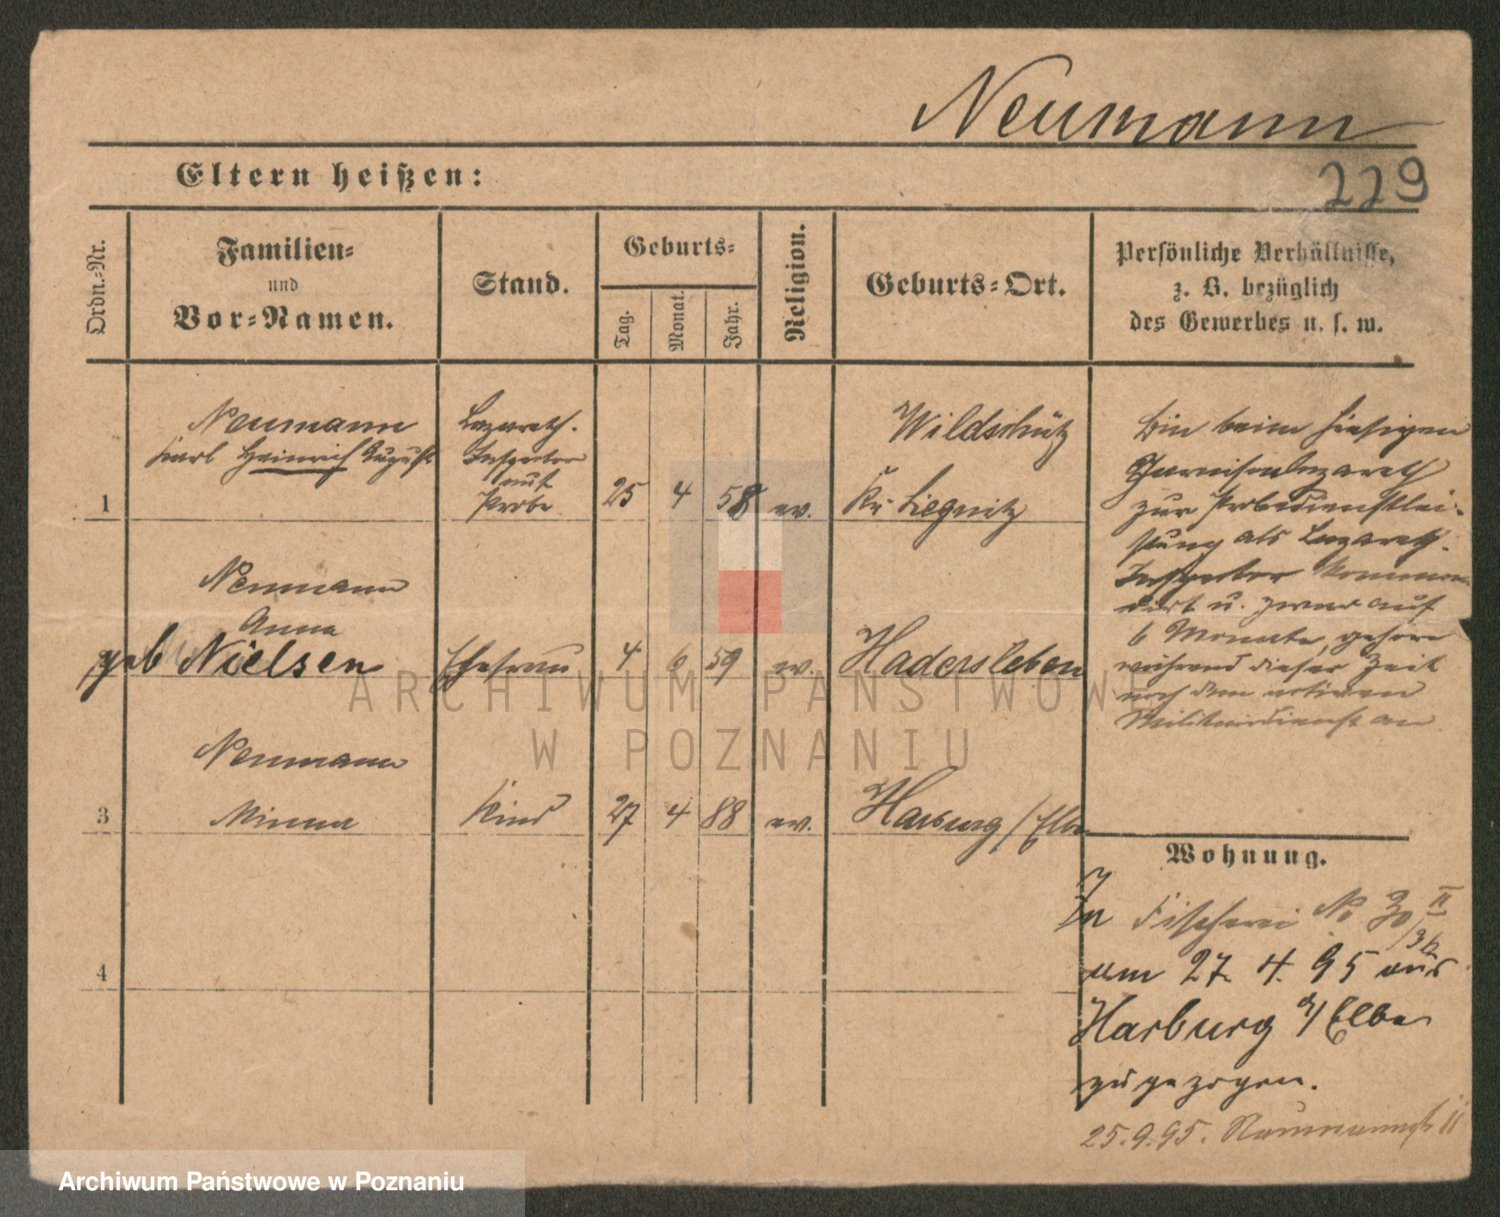 Neumann
229
Eltern heißen:
Ordn.-Nr.
Familien-
und
Vor-Namen.
Stand.
Geburts-
Tag.
Monat.
Jahr.
Religion.
Geburts-Ort.
Persönliche Verhältnisse,
z. B. bezüglich
des Gewerbes u. s. w.
1
Neumann
Karl Heinrich August
Lazareth-
Inspektor
auf
Probe
25 4 58 ev.
Wildschütz
Kr. Liegnitz
Bin beim hiesigen
Garnisonlazareth
zur Probedienstlei-
stung als Lazareth-
Inspektor komman-
dirt u. zwar auf
6 Monate, gehöre
während dieser Zeit
noch dem activen
Militärdienst an
Neumann
Anna
geb Nielsen
Ehefrau
4 6 59 ev.
Hadersleben
3
Neumann
Minna
Kind
27 4 88 ev.
Harburg / Elbe
4
Wohnung.
In Fischerei No 30 II
am 27. 4. 95 aus
Harburg a/ Elbe
zugezogen.
25.9.95. Naumannstr
ARCHIWUM PAŃSTWOWE
W POZNANIU
Archiwum Państwowe w Poznaniu